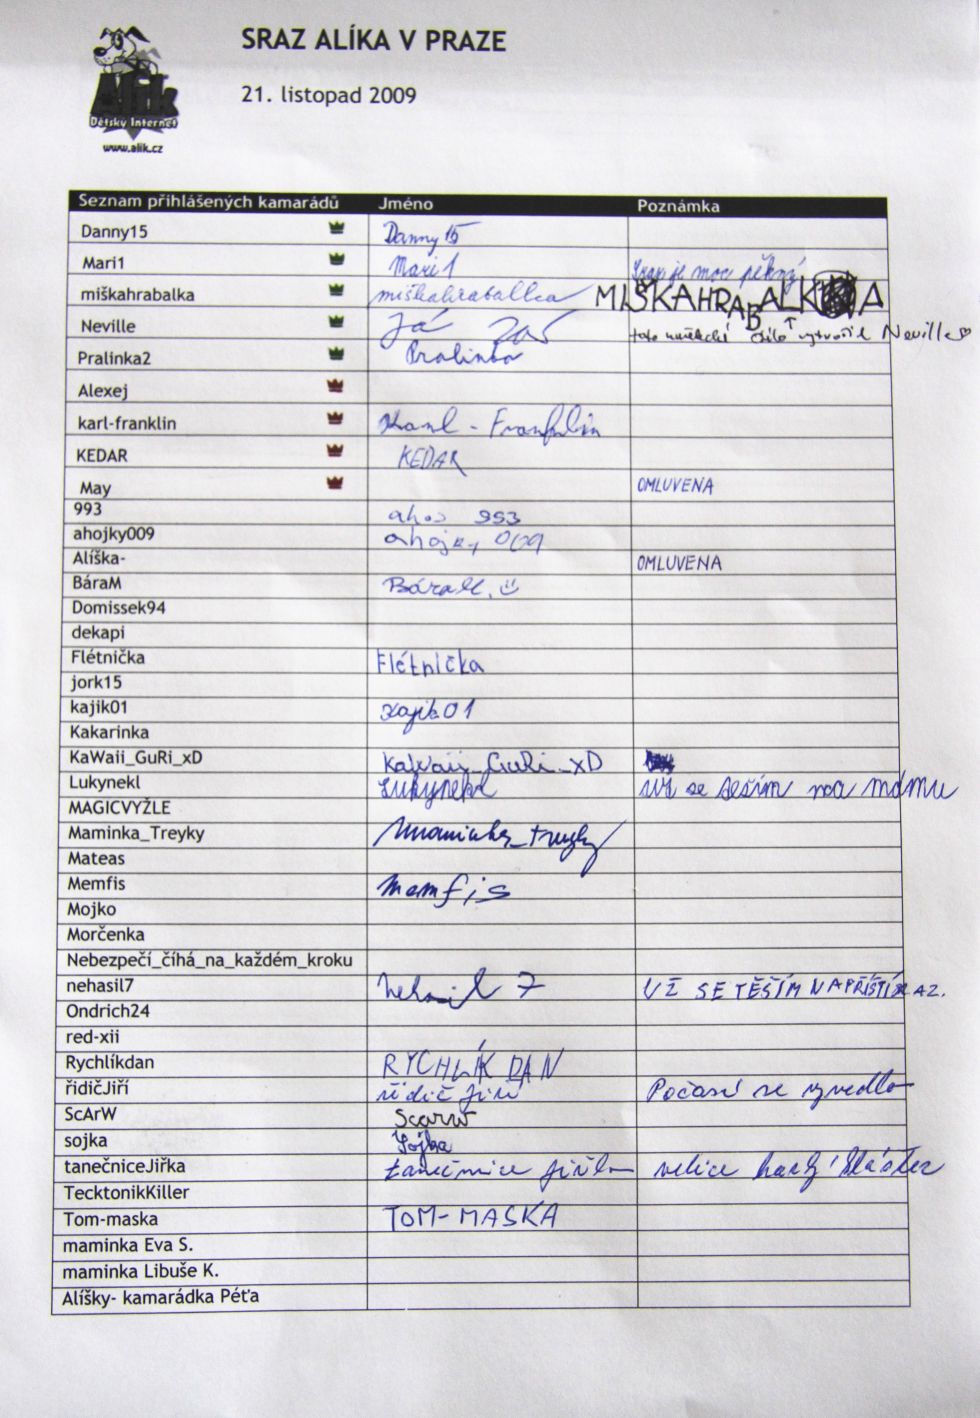 SRAZ ALÍKA V PRAZE
21. listopad 2009
Alík
Dětský Internet
www.alik.cz
Seznam přihlášených kamarádů Jméno Poznámka
Danny15 Danny 15
Mari1 Mari 1 Sraz je moc pěkný
miškahrabalka miškahraballka MIŠKAHRABALKA
Neville Já zas toto umělecké dílo vytvořil Neville
Pralinka2 Pralinka
Alexej
karl-franklin Karl - Franklin
KEDAR KEDAR
May OMLUVENA
993 ahoj 993
ahojky009 ahojky 009
Alíška- OMLUVENA
BáraM BáraM. ☺
Domissek94
dekapi
Flétnička Flétnička
jork15
kajik01 kajik01
Kakarinka
KaWaii_GuRi_xD KaWaii_GuRi_xD
Lukynekl Lukynekl se těším na mámu
MAGICVYŽLE
Maminka_Treyky Maminka_treyky
Mateas
Memfis memfis
Mojko
Morčenka
Nebezpečí_číhá_na_každém_kroku
nehasil7 nehasil 7 UŽ SE TĚŠÍM NA PŘÍŠTÍ RAZ.
Ondrich24
red-xii
Rychlíkdan RYCHLÍK DAN
řidičJiří řidič Jiří Počasí se vyvedlo
ScArW Scarw
sojka Sojka
tanečniceJiřka tanečnice Jiřka velice hezký
TecktonikKiller
Tom-maska TOM-MASKA
maminka Eva S.
maminka Libuše K.
Alíšky- kamarádka Péťa